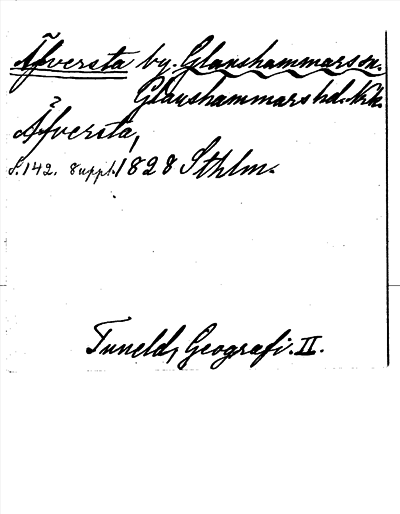 Äfversta by. Glanshammars sn.
Glanshammars hd. Nrk.
Äfversta,
S. 142. 8 uppl. 1828 Sthlm.
Tuneld, Geografi. II.